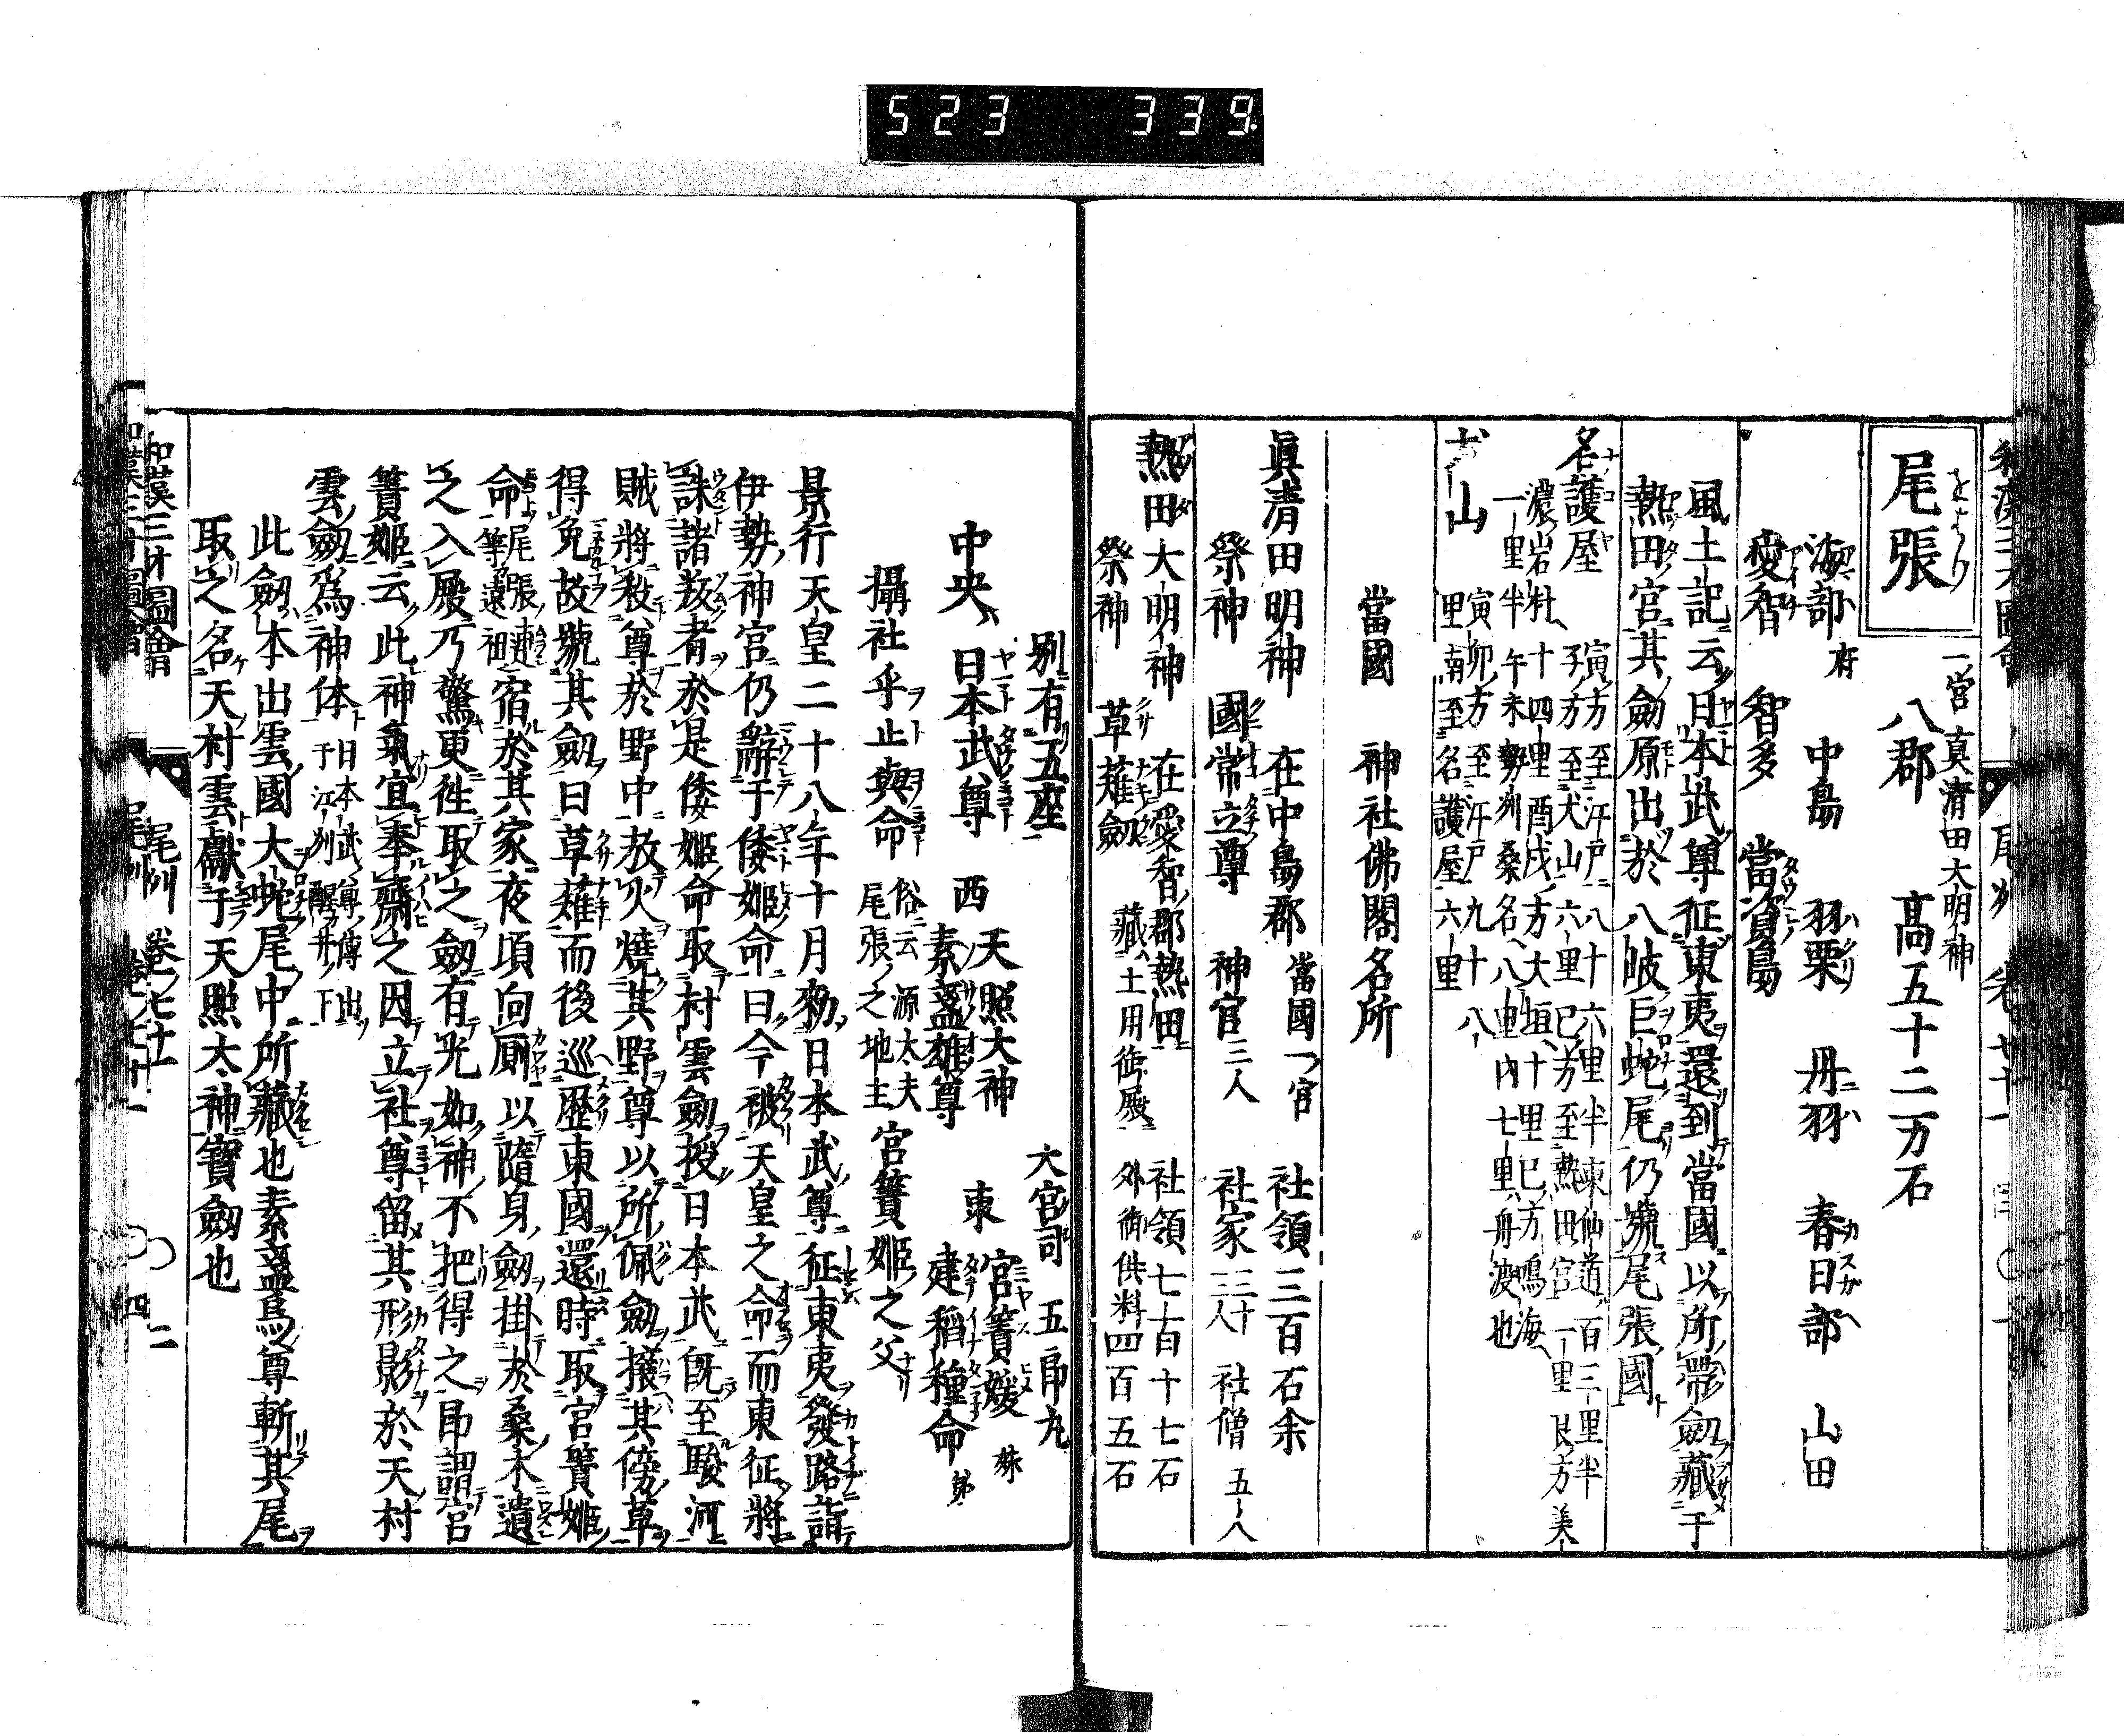 523 339
尾張
をはり
一宮 真清田大明神
八郡 髙五十二万石
海部 府 中島 羽栗 丹羽 春日部 山田
愛智 智多 當資島
風土記云日本武尊征東夷還到當國以所帶劔藏于
熱田宮其劔原出於八岐巨蛇尾仍號尾張國
名護屋
寅方至江戸八十六里半東仙道百三里半
子方至犬山六里 巳方至熱田宮一里 艮方美
濃岩村十四里 酉戌方大垣十里 巳方鳴海
一里半 午未勢州桑名八里内七里舟渡也
犬山
寅卯方至江戸九十八
里南至名護屋六里
當國 神社佛閣名所
眞清田明神 在中島郡 當國一宮 社領三百石余
祭神 國常立尊 神官三人 社家三十三人 社僧五人
熱田大明神 在愛智郡熱田 社領七百十七石
祭神 草薙劔 藏土用御殿 外御供料四百五石
別有五座 大宮司 五郎丸
中央 日本武尊 西 天照大神 素盞雄尊 東 宮簀媛 妹 建稻種命 弟
攝社乎止與命 俗云源太夫 尾張之地主 宮簀姫之父
景行天皇二十八年十月勅日本武尊征東夷發路詣
伊勢神宮仍辭于倭姫命曰今被天皇之命而東征將
誅諸叛者於是倭姫命取村雲劔授日本武既至駿河
賊將殺尊於野中放火燒其野尊以所佩劔撥其傍草
得免故號其劔曰草薙而後巡歴東國還時取宮簀姫
命 尾張連等遠祖 宿於其家夜頃向厠以隨身劔掛於桑木遺
之入殿乃驚更徃取之劔有光如神不把得之即謂宮
簀姫云此神氣宜奉齋之因立社尊留其形影於天村
雲劔爲神体 日本武尊傳出于江州醒井下
此劔本出雲國大蛇尾中所藏也素盞烏尊斬其尾
取之名天村雲獻于天照大神寳劔也
和漢三才圖會 尾州 巻ノ七十一 二